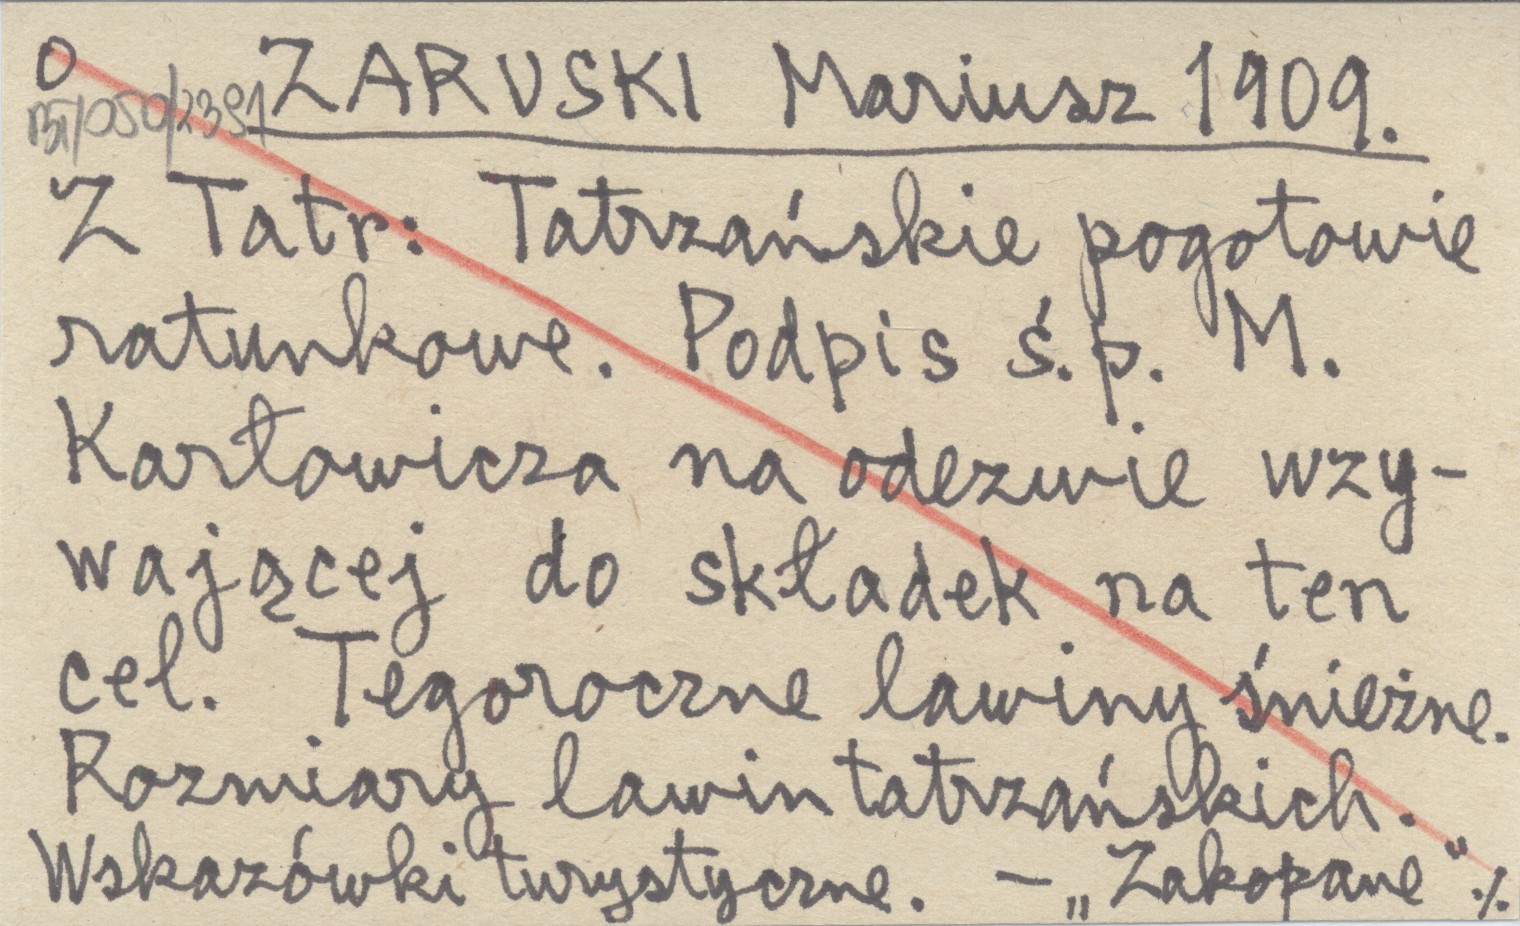 O ZARUSKI Mariusz 1909.
BT/050/2391
Z Tatr: Tatrzańskie pogotowie
ratunkowe. Podpis ś.p. M.
Karłowicza na odezwie wzy-
wającej do składek na ten
cel. Tegoroczne lawiny śnieżne.
Rozmiary lawin tatrzańskich.
Wskazówki turystyczne. – „Zakopane" ./.